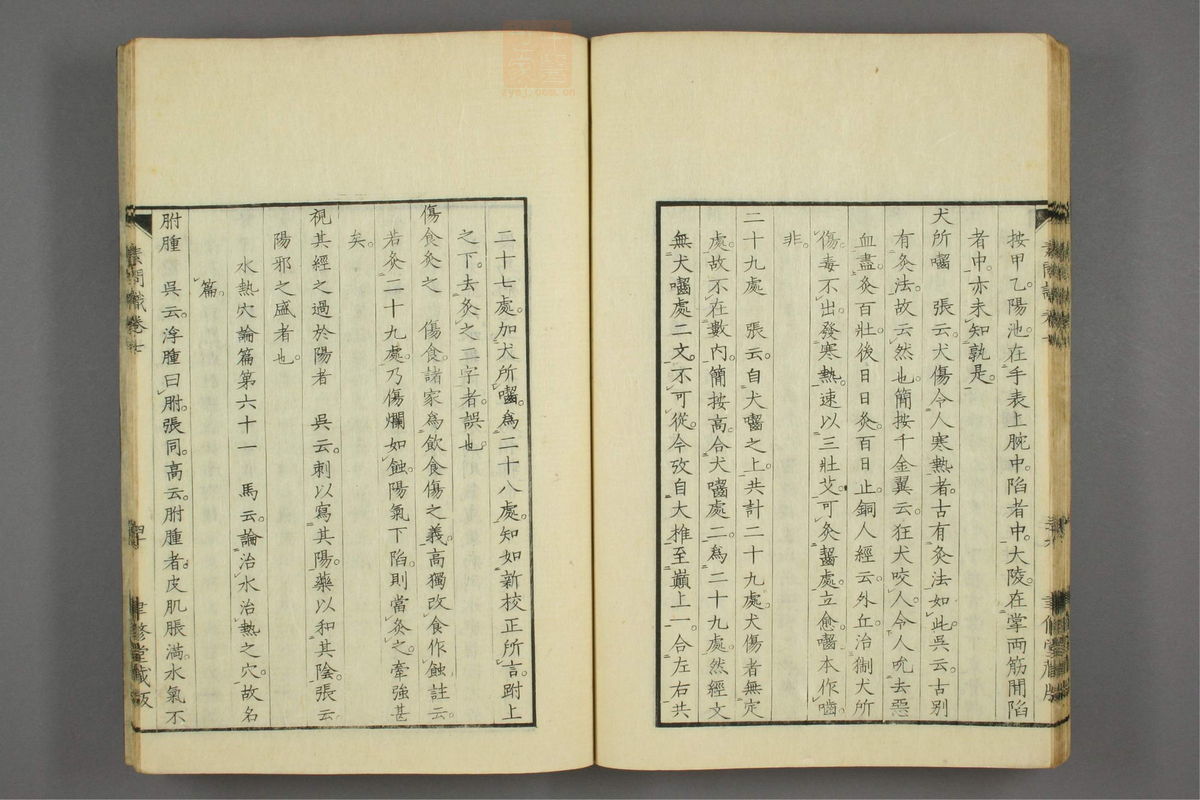 按甲乙。陽池。在手表上腕中。陷者中。大陵。在掌兩筋間陷
者中。亦未知孰是。
犬所嚙　張云。犬傷令人寒熱者。古有灸法如此。吳云。古別
有灸法。故云然也。簡按千金翼云。狂犬咬人。令人吮去惡
血盡。灸百壯。後日日灸。百日止。銅人經云。外丘。治猘犬所
傷。毒不出。發寒熱。速以三壯艾。可灸齧處。立愈。嚙本作嚙。
非。
二十九處　張云。自犬嚙之上。共計二十九處。犬傷者無定
處。故不在數內。簡按高。合犬嚙處二。為二十九處。然經文
無犬嚙處二文。不可從。今攷自大椎至巔上一。合左右共
二十七處。加犬所嚙。為二十八處。知如新校正所言。跗上
之下。去灸之二字者。誤也。
傷食灸之　傷食。諸家為飲食傷之義。高獨改食作蝕。註云。
若灸二十九處。乃傷爛如蝕。陽氣下陷。則當灸之。牽強甚
矣。
視其經之過於陽者　吳云。刺以寫其陽。藥以和其陰。張云。
陽邪之盛者也。
水熱穴論篇第六十一　馬云。論治水治熱之穴。故名
篇。
胕腫　吳云。浮腫曰胕。張同。高云。胕腫者。皮肌脹滿。水氣不
素問識卷七
聿修堂藏版